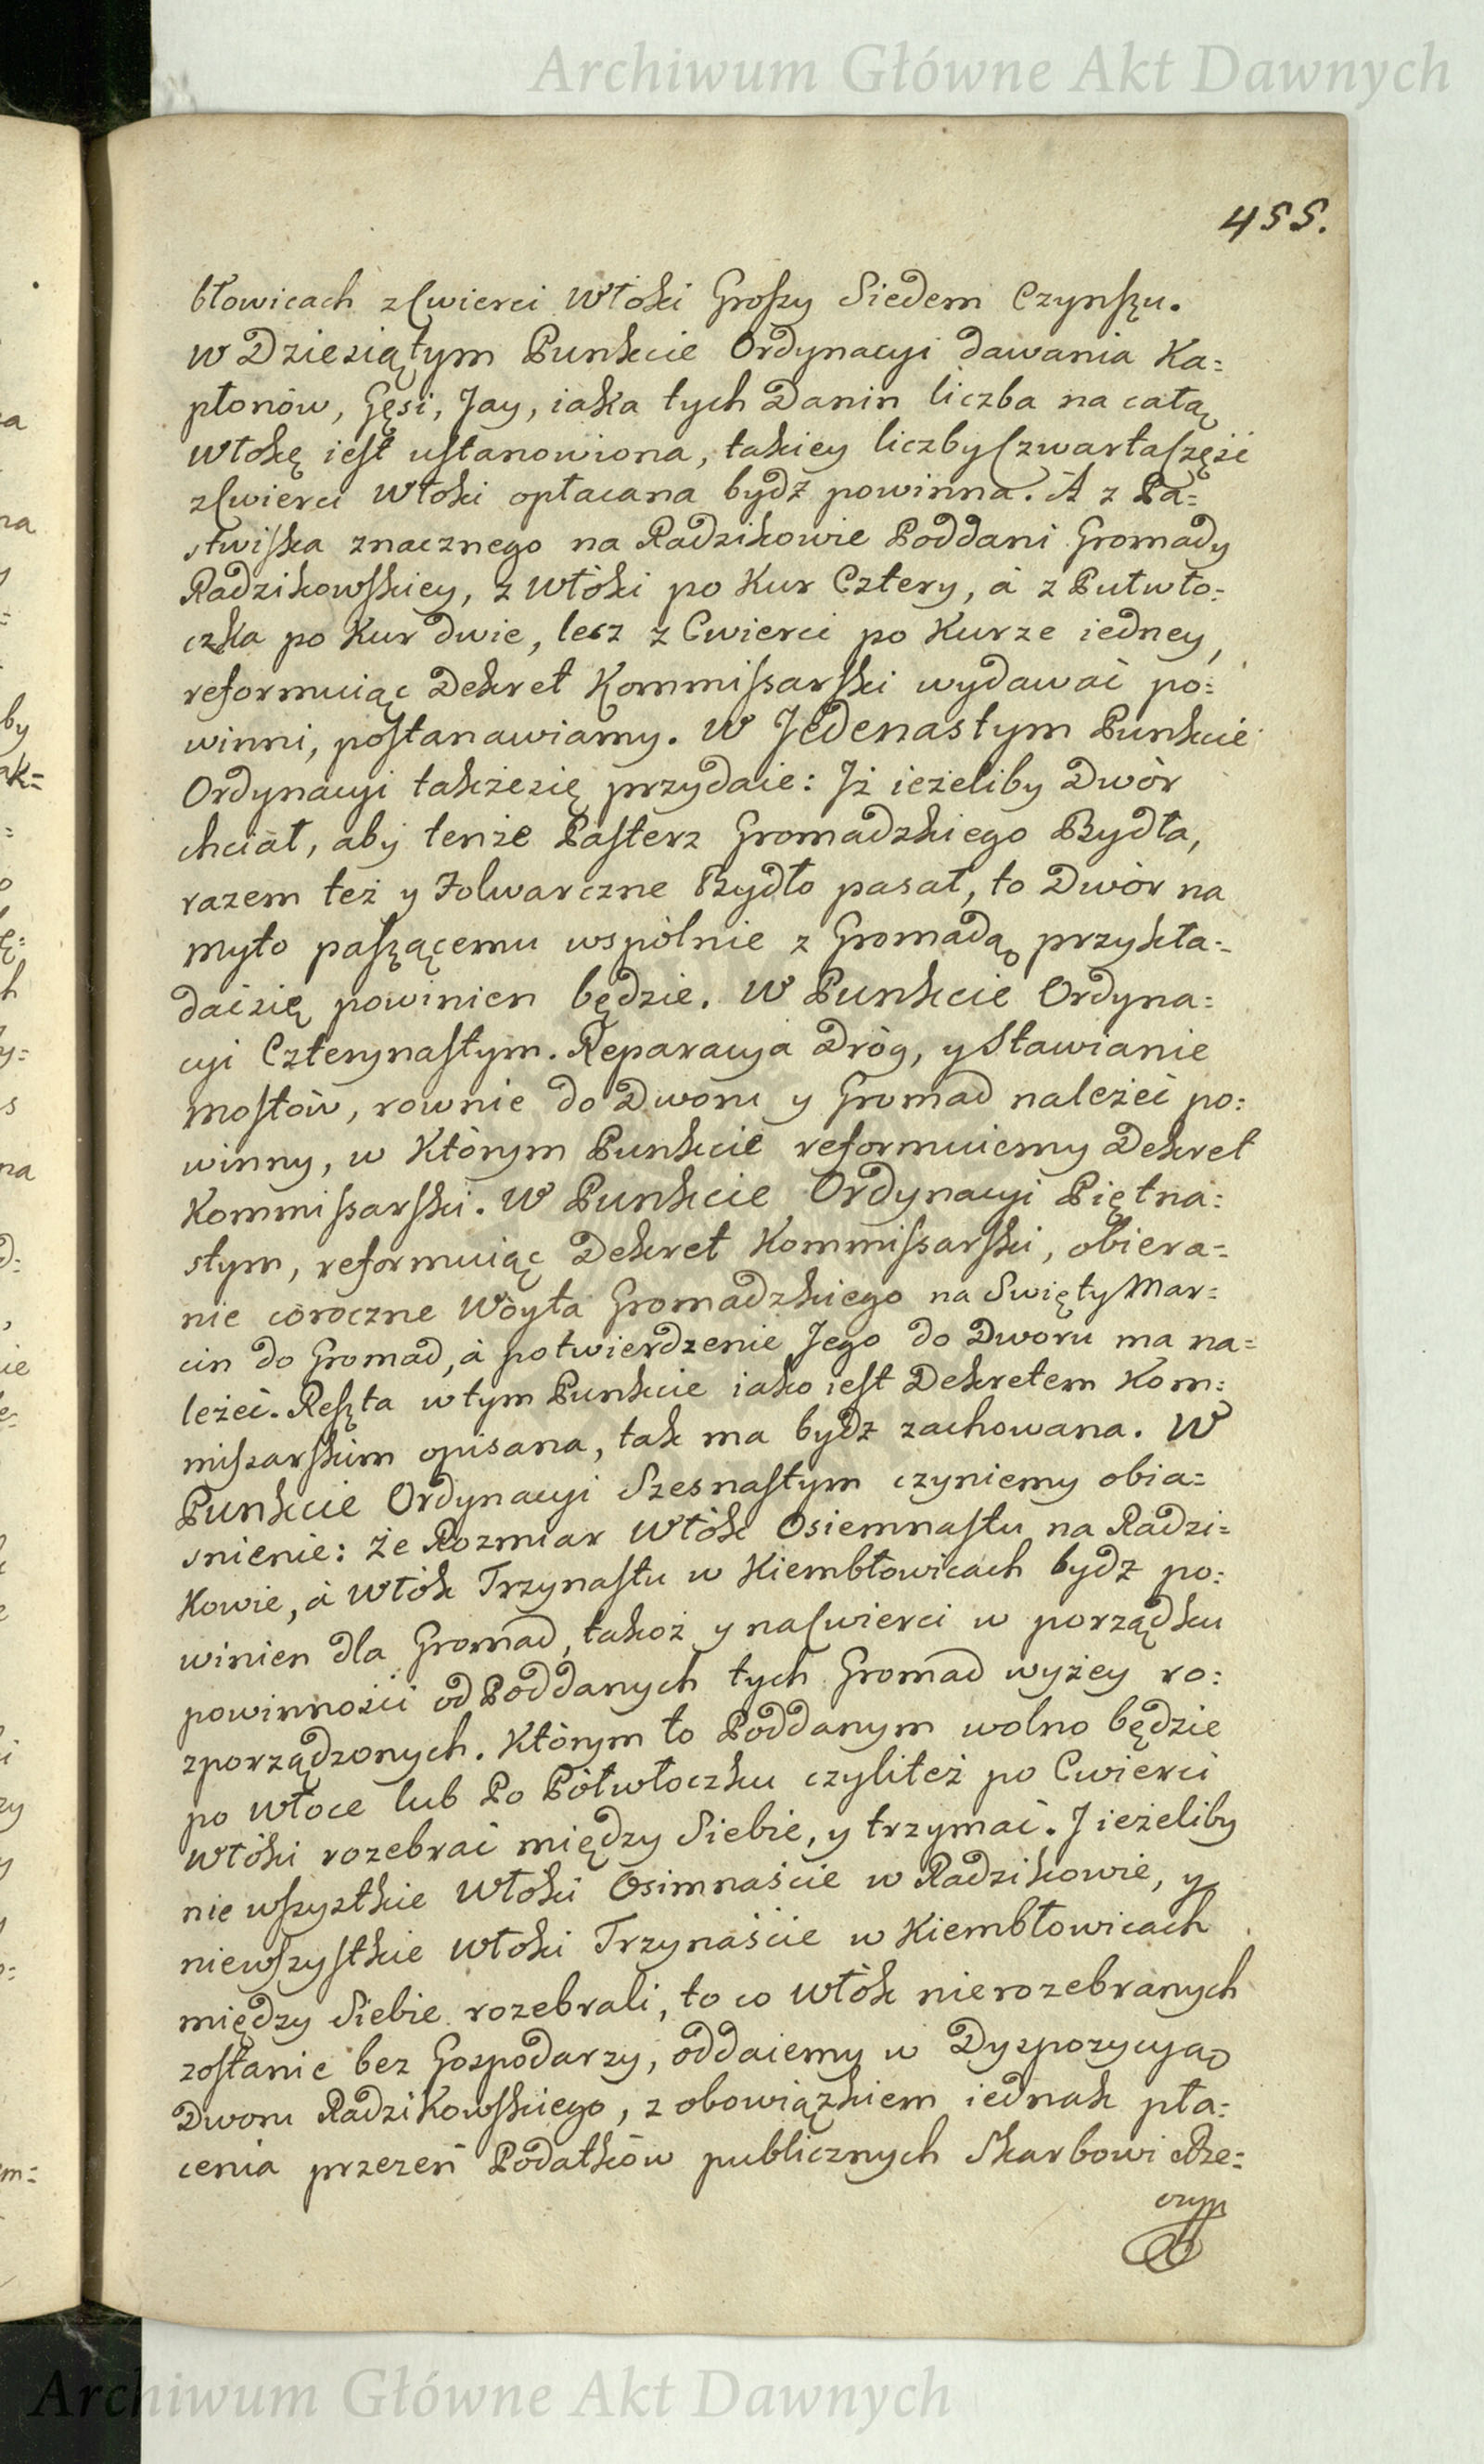 Archiwum Główne Akt Dawnych
455.
błowicach z Cwierci Włoki Groszy Siedem Czynszu.
w Dziesiątym Punkcie Ordynacyi dawania Ka=
płonów, Gęsi, Jay, iaka tych Danin liczba na całą
Włokę iest ustanowiona, takiey liczby Czwarta Część
z Cwierci Włoki opłacana bydź powinna. A z Pa=
stwiska znacznego na Radzikowie Poddani Gromady
Radzikowskiey, z Włóki po Kur Cztery, à z Pułwło=
czka po Kur dwie, lecz z Cwierci po Kurze iedney,
reformuiąc Dekret Kommissarski wydawać po=
winni, postanawiamy. W Jedenastym Punkcie
Ordynacyi takżesię przydaie: Jż ieżeliby Dwór
chciał, aby tenże Pasterz Gromadzkiego Bydła,
razem też y Folwarczne Bydło pasał, to Dwór na
myto paszącemu wspólnie z Gromadą przykła=
daćsię powinien będzie. W Punkcie Ordyna=
cyi Czternastym. Reparacya Dróg, y Stawianie
mostów, rownie do Dworu y Gromad należeć po=
winny, w Którym Punkcie reformuiemy Dekret
Kommissarski. W Punkcie Ordynacyi Piętna=
stym, reformuiąc Dekret Kommissarski, obiera=
nie coroczne Woyta Gromadzkiego na Swięty Mar=
cin do Gromad, à potwierdzenie Jego do Dworu ma na=
leżeć. Reszta w tym Punkcie iako iest Dekretem Kom=
missarskim opisana, tak ma bydz zachowana. W
Punkcie Ordynacyi Szesnastym czyniemy obia=
snienie: że Rozmiar Włók Osiemnastu na Radzi=
Kowie, à Włók Trzynastu w Kiembłowicach bydź po=
winien dla Gromad, takoż y na Cwierci w porządku
powinności od Poddanych tych Gromad wyżey ro=
zporządzonych. Którym to Poddanym wolno będzie
po Włoce lub Po Półwłoczku czyliteż po Cwierci
Włóki rozebrać między Siebie, y trzymać. J ieżeliby
nie wszystkie Włoki Osimnaście w Radzikowie, y
niewszystkie Włoki Trzynaście w Kiembłowicach
między Siebie rozebrali, to co Włók nierozebranych
zostanie bez Gospodarzy, oddaiemy w Dyspozycyą
Dworu RadziKowskiego, z obowiązkiem iednak pła=
cenia przezeń Podatków publicznych Skarbowi Rze=
czyp
Archiwum Główne Akt Dawnych